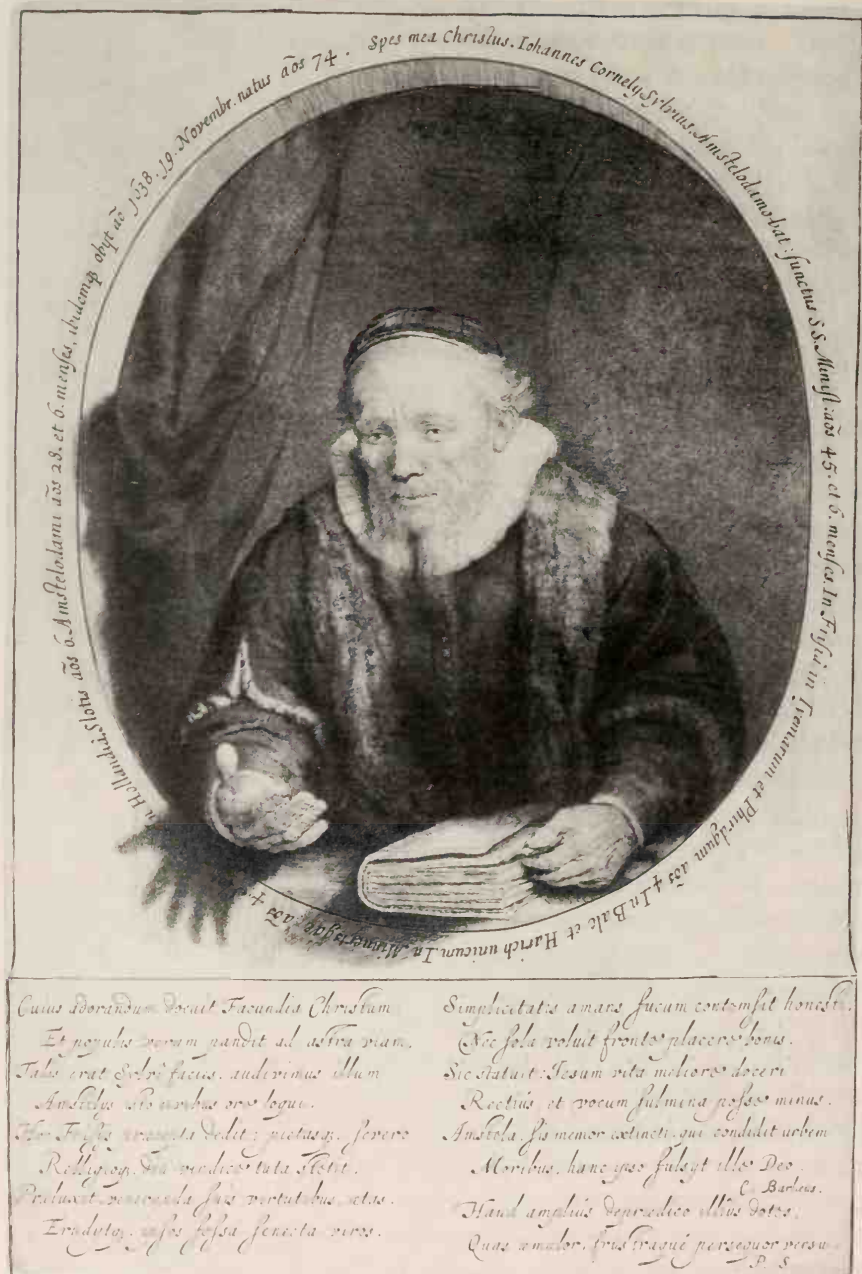 Spes mea Christus. Iohannes Cornely Sylvius, Amstelodamobat: functus S.S. Minist: aōs 45. et 6. menses. In Frisia in et Phirdgum aōs 4 In Balc et Harich unicum. In Minnertsgae aōs 4 n Hollandia, Slotis aōs 6. Amstelodami aōs 28. et 6. menses, ibidemq obyt aō 1638. 19. Novembr. natus aōs 74.
Cuius adorandum docuit Facundia Christum
Et populis veram pandit ad astra viam.
Talis erat Sylvî facies. audivimus illum
Amstelys isto civibus ore loqui.
Hoc Frisiis præcepta dedit; pietasq. severo
Relligioq. diu vindice tuta stetit.
Præluxit, veneranda suis virtutibus, ætas.
Erudytq. ipsos fessa senecta viros.
Simplicitatis amans fucum contemsit honesti,
Nec sola voluit fronte placere bonis.
Sic statuit: Iesum vita meliore doceri
Rectius, et vocum fulmina posse minus.
Amstela, sis memor extincti. qui condidit urbem
Moribus, hanc ipso fulsyt ille Deo.
C. Barlæus.
Haud amplius deprædico illius dotes,
Quas æmulor, frustraque persequor versu.
P. S.